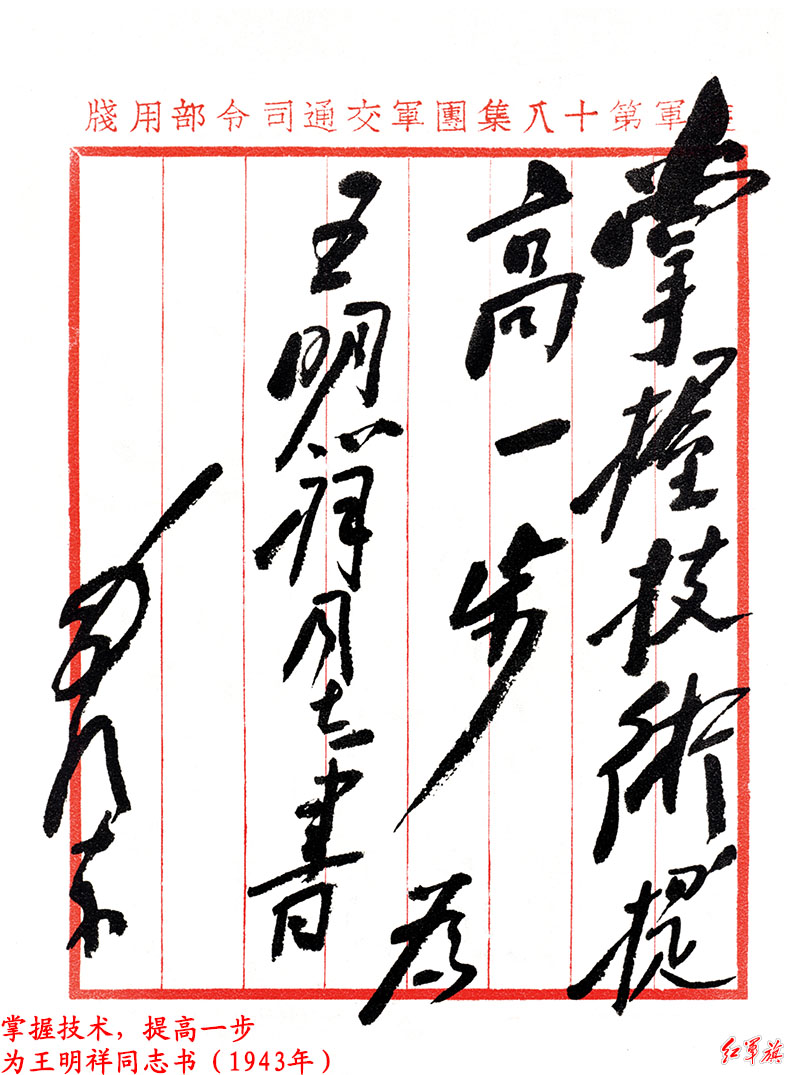 軍第十八集團軍交通司令部用牋
掌握技術提
高一步 為
王明祥同志書
毛澤東
掌握技术，提高一步
为王明祥同志书（1943年）
红军旗